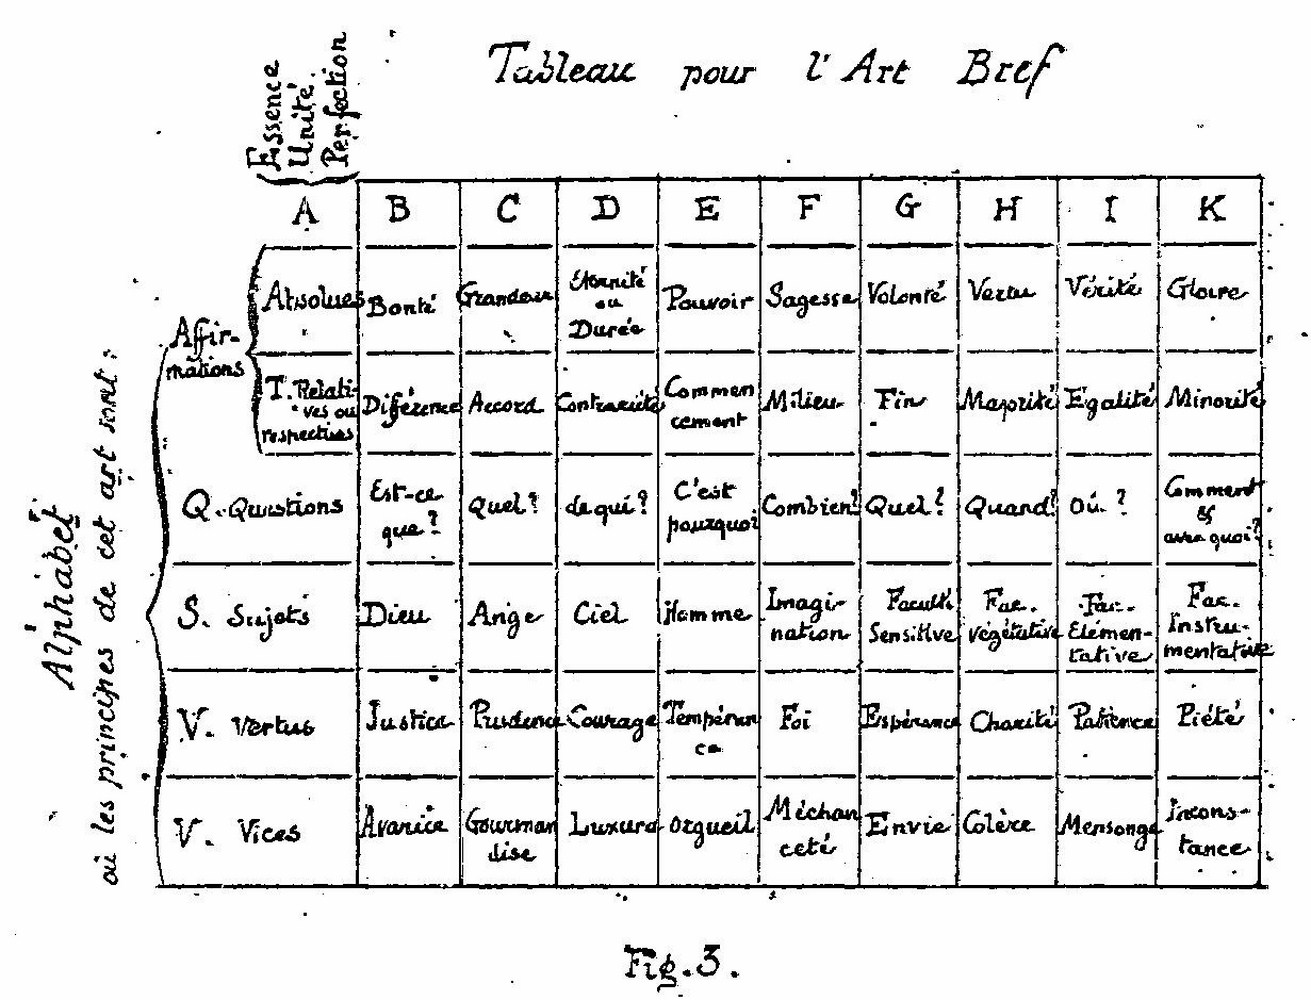 Tableau pour l'Art Bref
Essence
Unité
Perfection
A B C D E F G H I K
Alphabet
où les principes de cet art sont:
Affir-
mations
Absolues Bonté Grandeur Eternité ou Durée Pouvoir Sagesse Volonté Vertu Vérité Gloire
T. Relati-
ves ou
respectives
Différence Accord Contrariété Commen cement Milieu Fin Majorité Egalité Minorité
Q. Questions Est-ce que? Quel? de qui? C'est pourquoi Combien? Quel? Quand? Où? Comment & avec quoi?
S. Sujets Dieu Ange Ciel Homme Imagi- nation Faculté Sensitive Fac. végétative Fac. Elémen- tative Fac. Instru- mentative
V. Vertus Justice Prudence Courage Tempéran ce Foi Espérance Charité Patience Piété
V. Vices Avarice Gourman dise Luxure Orgueil Méchan ceté Envie Colère Mensonge Incons- tance
Fig. 3.